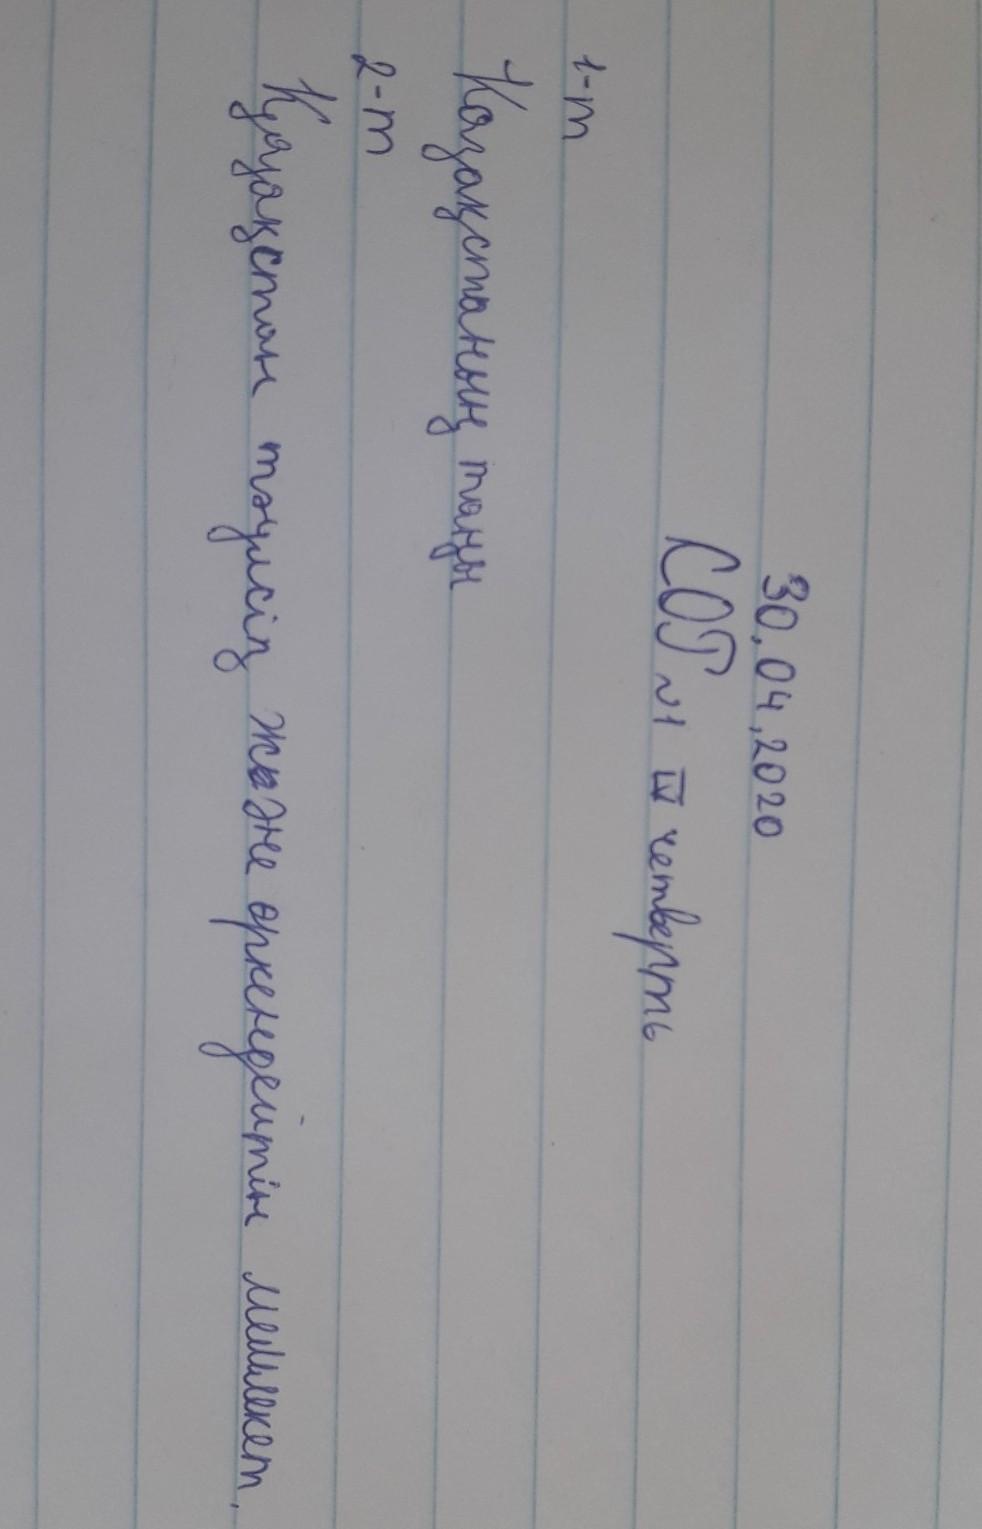 30.04.2020
СОГ №1 IV четверть
1-т
Қазақстаның таңы
2-т
Қазақстан тәулсіз және өркендейтін мемлекет.